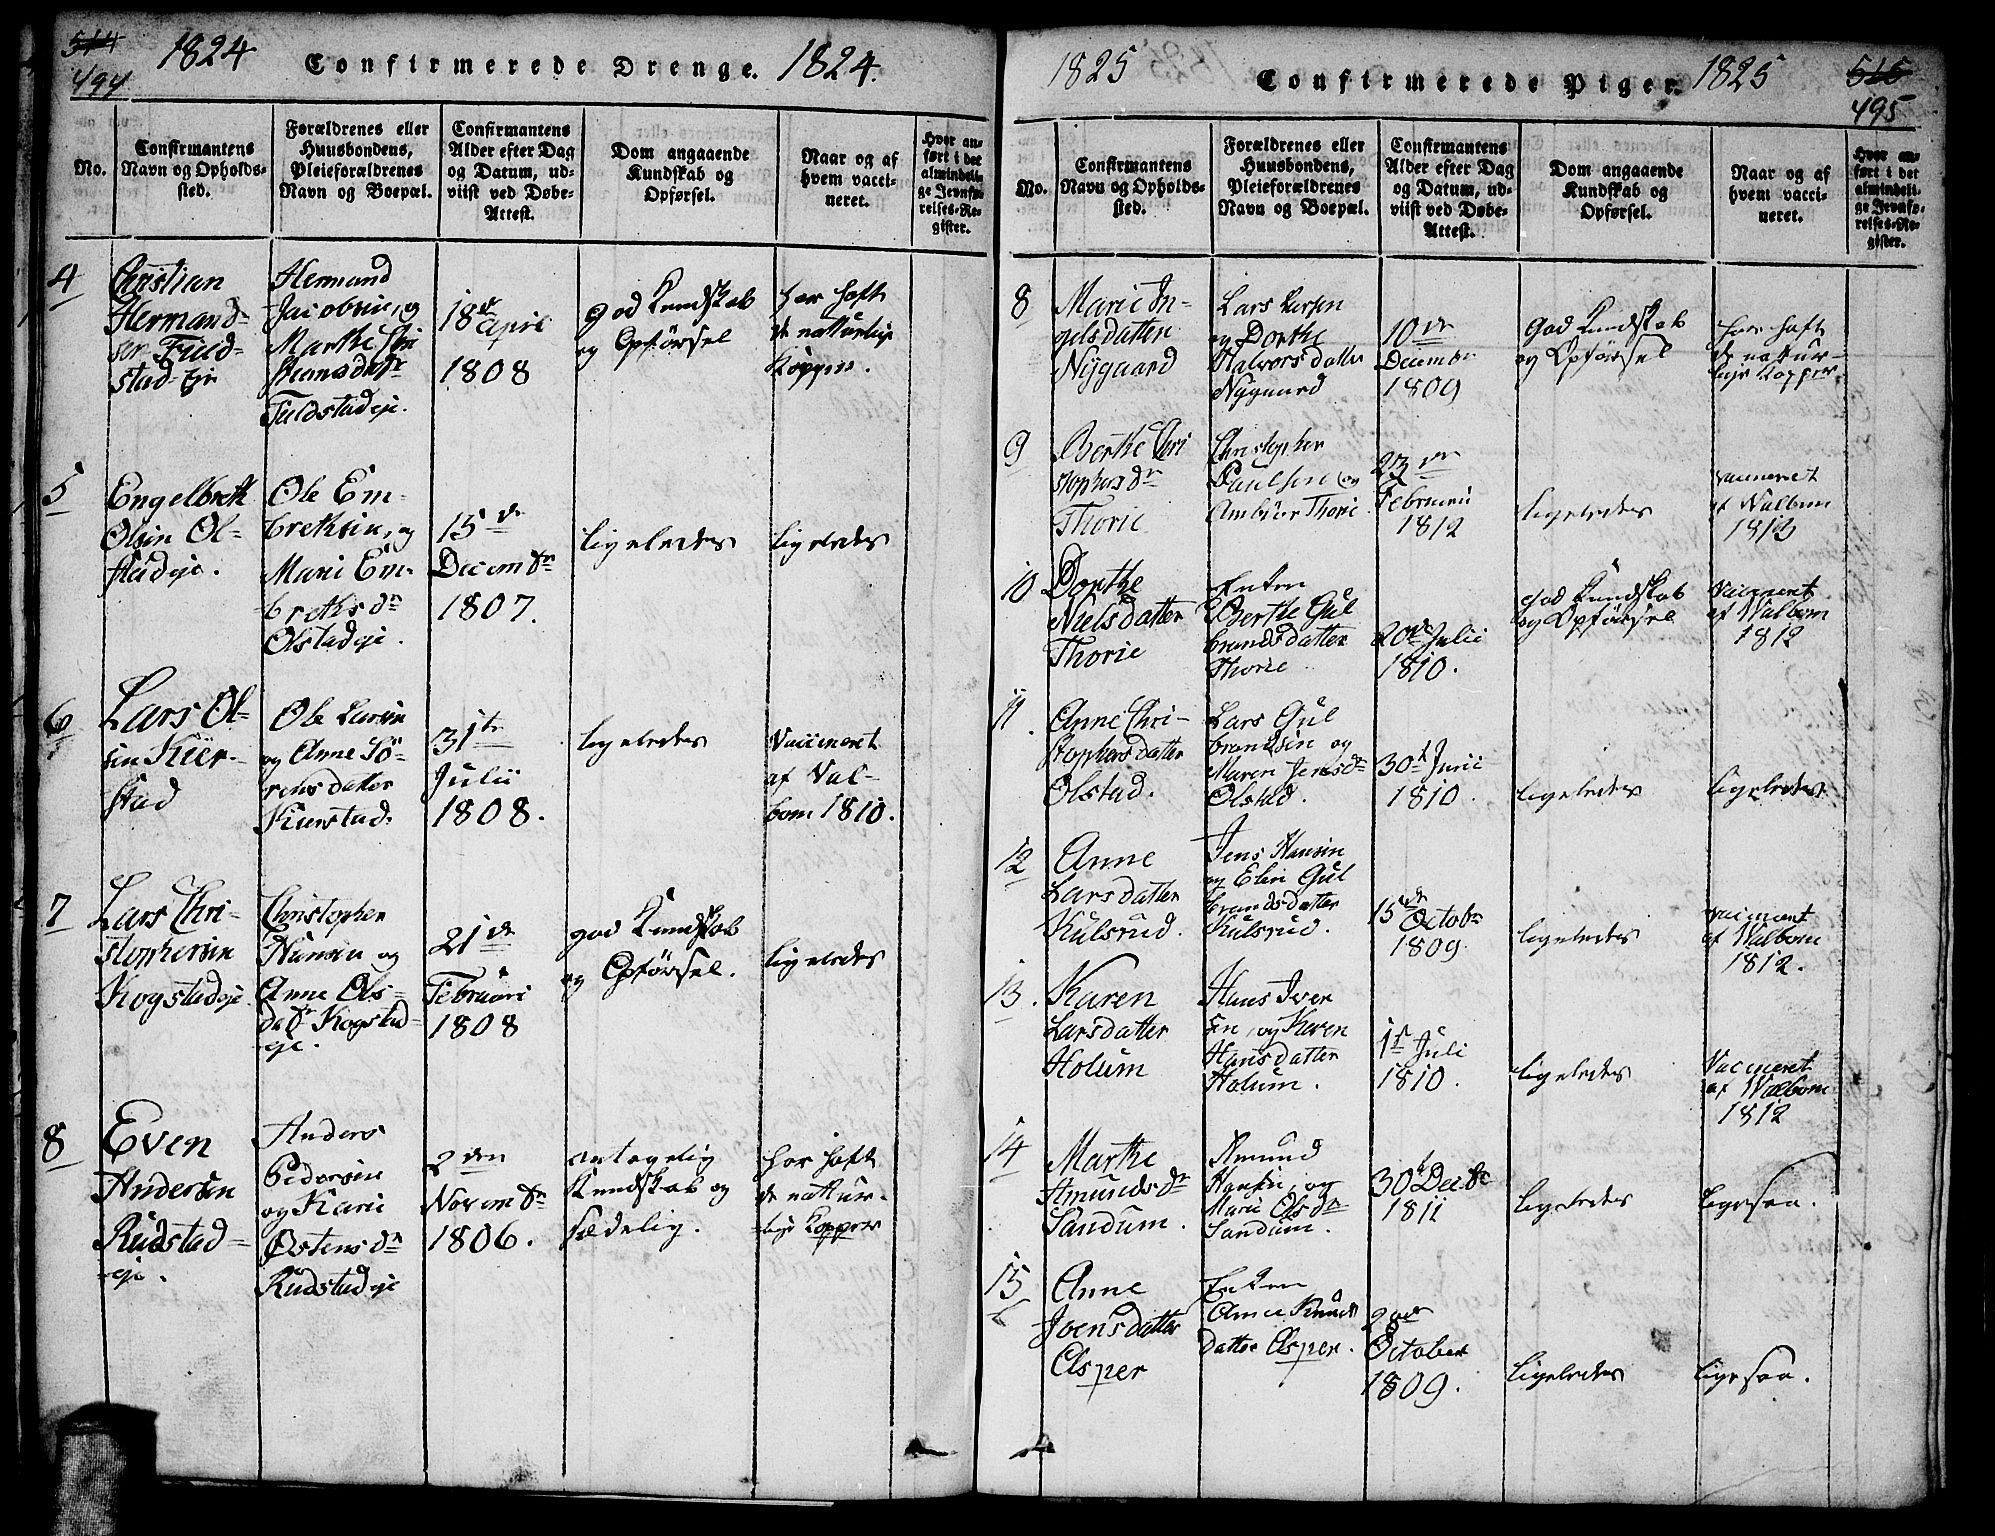 514
494
1824
Confirmerede Drenge.
1824.
No.
Confirmantens
Navn og Opholds-
sted.
Forældrenes eller
Huusbondens,
Pleieforældrenes
Navn og Boepæl.
Confirmantens
Alder efter Dag
og Datum, ud-
viist ved Døbe-
Attest.
Dom angaaende
Kundskab og
Opførsel.
Naar og af
hvem vacci-
neret.
Hvor an-
ført i det
almindeli-
ge Jevnfø-
relses-Re-
gister.
4
Christian
Hermand-
Hermand
Jacobsen, og
Marthe
18de April
1808
god Kundskab
og Opførsel
har haft
de naturlige
Kopper.
5
Engelbreth
Olsen Ol-
stadeje.
Ole Em-
brethsen, og
Marie Em-
brethsdr
Olstadeje.
15de
Decembr
1807.
ligeledes
ligeledes
6
Lars Ol-
sen Kier-
stad
Ole Larsen
og Anne Sö-
rensdatter
Kierstad.
31te
Julii
1808.
ligeledes
Vaccineret
af Val-
bom 1810.
7
Lars Chri-
stophersen
Kogstadeje
Christopher
Hansen og
Anne Ols-
datr Kogstad-
eje.
21de
Februari
1808
god Kundskab
og Opførsel.
ligeledes
8
Even
Andersen
Rudstad-
eje.
Anders
Pedersen
og Kari
Østensdr
Rudstadeje
2den
Novembr
1806.
antagelig
Kundskab og
sædelig.
har haft
de nattur-
lige Kopper
1825
Confirmerede Piger.
1825
515
495
No.
Confirmantens
Navn og Opholds-
sted.
Forældrenes eller
Huusbondens,
Pleieforældrenes
Navn og Boepæl.
Confirmantens
Alder efter Dag
og Datum, ud-
viist ved Døbe-
Attest.
Dom angaaende
Kundskab og
Opførsel.
Naar og af
hvem vacci-
neret.
Hvor an-
ført i det
almindeli-
ge Jevnfø-
relses-Re-
gister.
8
Marie In-
gelsdatter
Nygaard
Lars Larsen
og Dorthe
Halvorsdatter
Nygaard
10de
Decembr
1809
God Kundskab
og Opførsel
har haft
de nattur-
lige Kopper
9
Berthe Chri
stophersdr
Thorie
Christopher
Paulsen og
Thorie
23de
Februarii
1812
ligeledes
vaccineret
af Valbom
1813
10
Dorthe
Nielsdatter
Thorie
Enken
Berthe Gul
brandsdatter
Thorie
20de Julii
1810.
god Kundskab
og Opførsel
Vaccineret
af Valbom
1812
11.
Anne Chri-
stophersdatter
Olstad.
Lars Gul
brandsen og
Maren Jensdr
Olstad.
30t Junii
1810.
ligeledes
ligeledes
12
Anne
Larsdatter
Kulsrud.
Jens Hansen
og Eleri Gul
brandsdatter
Kulsrud.
15de Octobr
1809.
ligeledes
vaccineret
af Valbom
1812.
13.
Karen
Larsdatter
Holum
Hans Iver
sen, og Karen
Hansdatter
Holum.
1st Juli
1810.
ligeledes
Vaccineret
af Valbom
1812
14
Marthe
Amundsdr
Sandum.
Amund
Hansen, og
Marie Olsdr
Sandum.
30t Decbr
1811
ligeledes
ligesaa.
15
Anne
Joensdatter
Asper
Enken
Anne Knuds
datter Asper.
2den
October
1809.
ligeledes
ligesaa.